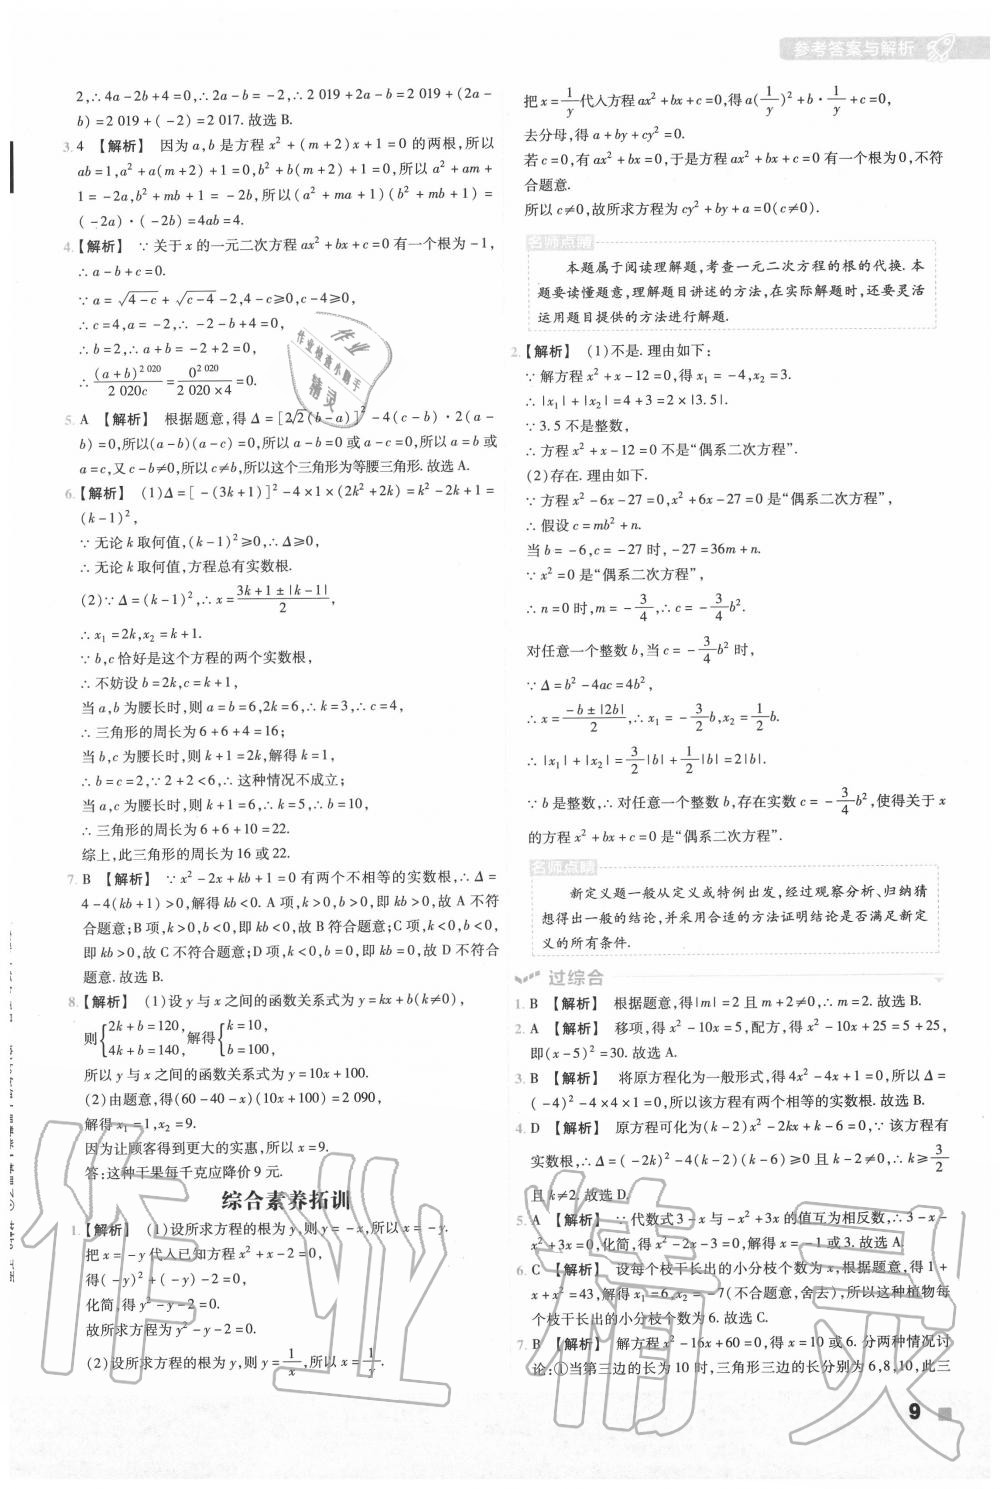 参考答案与解析
2,∴4a-2b+4=0,∴2a-b=-2,∴2 019+2a-b=2 019+(2a-
b)=2 019+(-2)=2 017.故选 B.
3. 4 【解析】 因为 a,b 是方程 x²+(m+2)x+1=0 的两根,所以
ab=1,a²+a(m+2)+1=0,b²+b(m+2)+1=0,所以 a²+am+
1=-2a,b²+mb+1=-2b,所以(a²+ma+1)(b²+mb+1)=
(-2a)·(-2b)=4ab=4.
4.【解析】 ∵关于 x 的一元二次方程 ax²+bx+c=0 有一个根为-1,
∴a-b+c=0.
∵a=√(4-c)+√(c-4)-2,4-c≥0,c-4≥0,
∴c=4,a=-2,∴-2-b+4=0,
∴b=2,∴a+b=-2+2=0,
∴(a+b)^2 020/2 020c=0^2 020/(2 020×4)=0.
5. A 【解析】 根据题意,得 Δ=[2√2(b-a)]²-4(c-b)·2(a-
b)=0,所以(a-b)(a-c)=0,所以 a-b=0 或 a-c=0,所以 a=b 或
a=c,又 c-b≠0,所以 c≠b,所以这个三角形为等腰三角形.故选 A.
6.【解析】 (1)Δ=[-(3k+1)]²-4×1×(2k²+2k)=k²-2k+1=
(k-1)²,
∵无论 k 取何值,(k-1)²≥0,∴Δ≥0,
∴无论 k 取何值,方程总有实数根.
(2)∵Δ=(k-1)²,∴x=(3k+1±|k-1|)/2,
∴x₁=2k,x₂=k+1.
∵b,c 恰好是这个方程的两个实数根,
∴不妨设 b=2k,c=k+1,
当 a,b 为腰长时,则 a=b=6,2k=6,∴k=3,∴c=4,
∴三角形的周长为 6+6+4=16;
当 b,c 为腰长时,则 k+1=2k,解得 k=1,
∴b=c=2,∵2+2<6,∴这种情况不成立;
当 a,c 为腰长时,则 k+1=6,∴k=5,∴b=10,
∴三角形的周长为 6+6+10=22.
综上,此三角形的周长为 16 或 22.
7. B 【解析】 ∵x²-2x+kb+1=0 有两个不相等的实数根,∴Δ=
4-4(kb+1)>0,解得 kb<0. A 项,k>0,b>0,即 kb>0,故 A 不符
合题意;B 项,k>0,b<0,即 kb<0,故 B 符合题意;C 项,k<0,b<0,
即 kb>0,故 C 不符合题意;D 项,k<0,b=0,即 kb=0,故 D 不符合
题意.故选 B.
8.【解析】 (1)设 y 与 x 之间的函数关系式为 y=kx+b(k≠0),
则{2k+b=120,4k+b=140,解得{k=10,b=100,
所以 y 与 x 之间的函数关系式为 y=10x+100.
(2)由题意,得(60-40-x)(10x+100)=2 090,
解得 x₁=1,x₂=9.
因为让顾客得到更大的实惠,所以 x=9.
答:这种干果每千克应降价 9 元.
综合素养拓训
1.【解析】 (1)设所求方程的根为 y,则 y=-x,所以 x=-y.
把 x=-y 代入已知方程 x²+x-2=0,
得(-y)²+(-y)-2=0.
化简,得 y²-y-2=0.
故所求方程为 y²-y-2=0.
(2)设所求方程的根为 y,则 y=1/x,所以 x=1/y.
把 x=1/y代入方程 ax²+bx+c=0,得 a(1/y)²+b·1/y+c=0,
去分母,得 a+by+cy²=0.
若 c=0,有 ax²+bx=0,于是方程 ax²+bx+c=0 有一个根为 0,不符
合题意.
所以 c≠0,故所求方程为 cy²+by+a=0(c≠0).
名师点睛
本题属于阅读理解题,考查一元二次方程的根的代换.本
题要读懂题意,理解题目讲述的方法,在实际解题时,还要灵活
运用题目提供的方法进行解题.
2.【解析】 (1)不是.理由如下:
∵解方程 x²+x-12=0,得 x₁=-4,x₂=3.
∴|x₁|+|x₂|=4+3=2×|3.5|.
∵3.5 不是整数,
∴方程 x²+x-12=0 不是“偶系二次方程”.
(2)存在.理由如下.
∵方程 x²-6x-27=0,x²+6x-27=0 是“偶系二次方程”,
∴假设 c=mb²+n.
当 b=-6,c=-27 时,-27=36m+n.
∵x²=0 是“偶系二次方程”,
∴n=0 时,m=-3/4,∴c=-3/4b².
对任意一个整数 b,当 c=-3/4b²时,
∵Δ=b²-4ac=4b²,
∴x=(-b±|2b|)/2,∴x₁=-3/2b,x₂=1/2b.
∴|x₁|+|x₂|=3/2|b|+1/2|b|=2|b|.
∵b 是整数,∴对任意一个整数 b,存在实数 c=-3/4b²,使得关于 x
的方程 x²+bx+c=0 是“偶系二次方程”.
名师点睛
新定义题一般从定义或特例出发,经过观察分析、归纳猜
想得出一般的结论,并采用合适的方法证明结论是否满足新定
义的所有条件.
过综合
1. B 【解析】 根据题意,得|m|=2 且 m+2≠0,∴m=2.故选 B.
2. A 【解析】 移项,得 x²-10x=5,配方,得 x²-10x+25=5+25,
即(x-5)²=30.故选 A.
3. B 【解析】 将原方程化为一般形式,得 4x²-4x+1=0,所以 Δ=
(-4)²-4×4×1=0,所以该方程有两个相等的实数根.故选 B.
4. D 【解析】 原方程可化为(k-2)x²-2kx+k-6=0,∵该方程有
实数根,∴Δ=(-2k)²-4(k-2)(k-6)≥0 且 k-2≠0,∴k≥3/2
且 k≠2.故选 D.
5. A 【解析】 ∵代数式 3-x 与-x²+3x 的值互为相反数,∴3-x-
x²+3x=0,化简,得 x²-2x-3=0,解得 x=-1 或 3.故选 A.
6. C 【解析】 设每个枝干长出的小分枝个数为 x,根据题意,得 1+
x+x²=43,解得 x₁=6,x₂=-7(不合题意,舍去),所以这种植物每
个枝干长出的小分枝个数为 6.故选 C.
7. B 【解析】 解方程 x²-16x+60=0,得 x=10 或 6.分两种情况讨
论:①当第三边的长为 10 时,三角形三边的长分别为 6,8,10,此三
9
作业
作业检查小助手
精灵
作业精灵